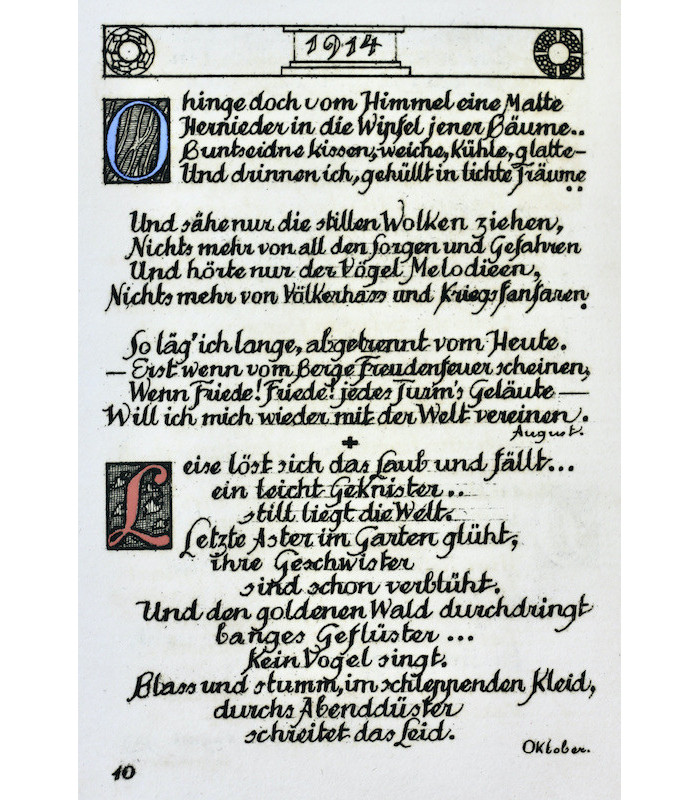 1914
O hinge doch vom Himmel eine Matte
Hernieder in die Wipfel jener Bäume..
Buntseidne Kissen, weiche, kühle, glatte–
Und drinnen ich, gehüllt in lichte Träume..
Und sähe nur die stillen Wolken ziehen,
Nichts mehr von all den Sorgen und Gefahren
Und hörte nur der Vögel Melodieen,
Nichts mehr von Völkerhass und Kriegsfanfaren.
So läg' ich lange, abgetrennt vom Heute.
— Erst wenn vom Berge Freudenfeuer scheinen,
Wenn Friede! Friede! jedes Turm's Geläute —
Will ich mich wieder mit der Welt vereinen.
August.
Leise löst sich das Laub und fällt...
ein leicht Geknister..
still liegt die Welt.
Letzte Aster im Garten glüht,
ihre Geschwister
sind schon verblüht.
Und den goldenen Wald durchdringt
banges Geflüster...
Kein Vogel singt.
Blass und stumm, im schleppenden Kleid,
durchs Abenddüster
schreitet das Leid.
Oktober.
10